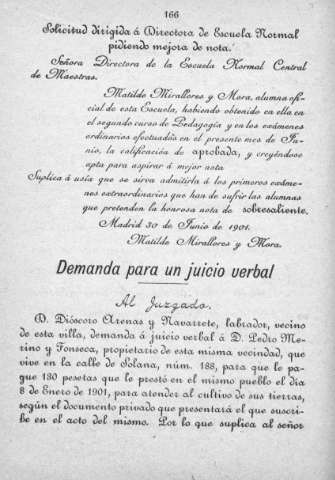 166
Solicitud dirigida á Directora de Escuela Normal
pidiendo mejora de nota.
Señora Directora de la Escuela Normal Central
de Maestras.
Matilde Mirallores y Mora, alumna ofi-
cial de esta Escuela, habiendo obtenido en ella en
el segundo curso de Pedagogía y en los exámenes
ordinarios efectuados en el presente mes de Ju-
nio, la calificación de aprobada, y creyéndose
apta para aspirar á mejor nota
Suplica á usía que se sirva admitirla á los primeros exáme-
nes extraordinarios que han de sufrir las alumnas
que pretenden la honrosa nota de sobresaliente.
Madrid 30 de Junio de 1901.
Matilde Mirallores y Mora.
Demanda para un juicio verbal
Al Juzgado.
D. Dióscoro Arenas y Navarrete, labrador, vecino
de esta villa, demanda á juicio verbal á D. Pedro Me-
rino y Fonseca, propietario de esta misma vecindad, que
vive en la calle de Solana, núm. 188, para que le pa-
gue 130 pesetas que le prestó en el mismo pueblo el día
8 de Enero de 1901, para atender al cultivo de sus tierras,
según el documento privado que presentará el que suscri-
be en el acto del mismo. Por lo que suplica al señor